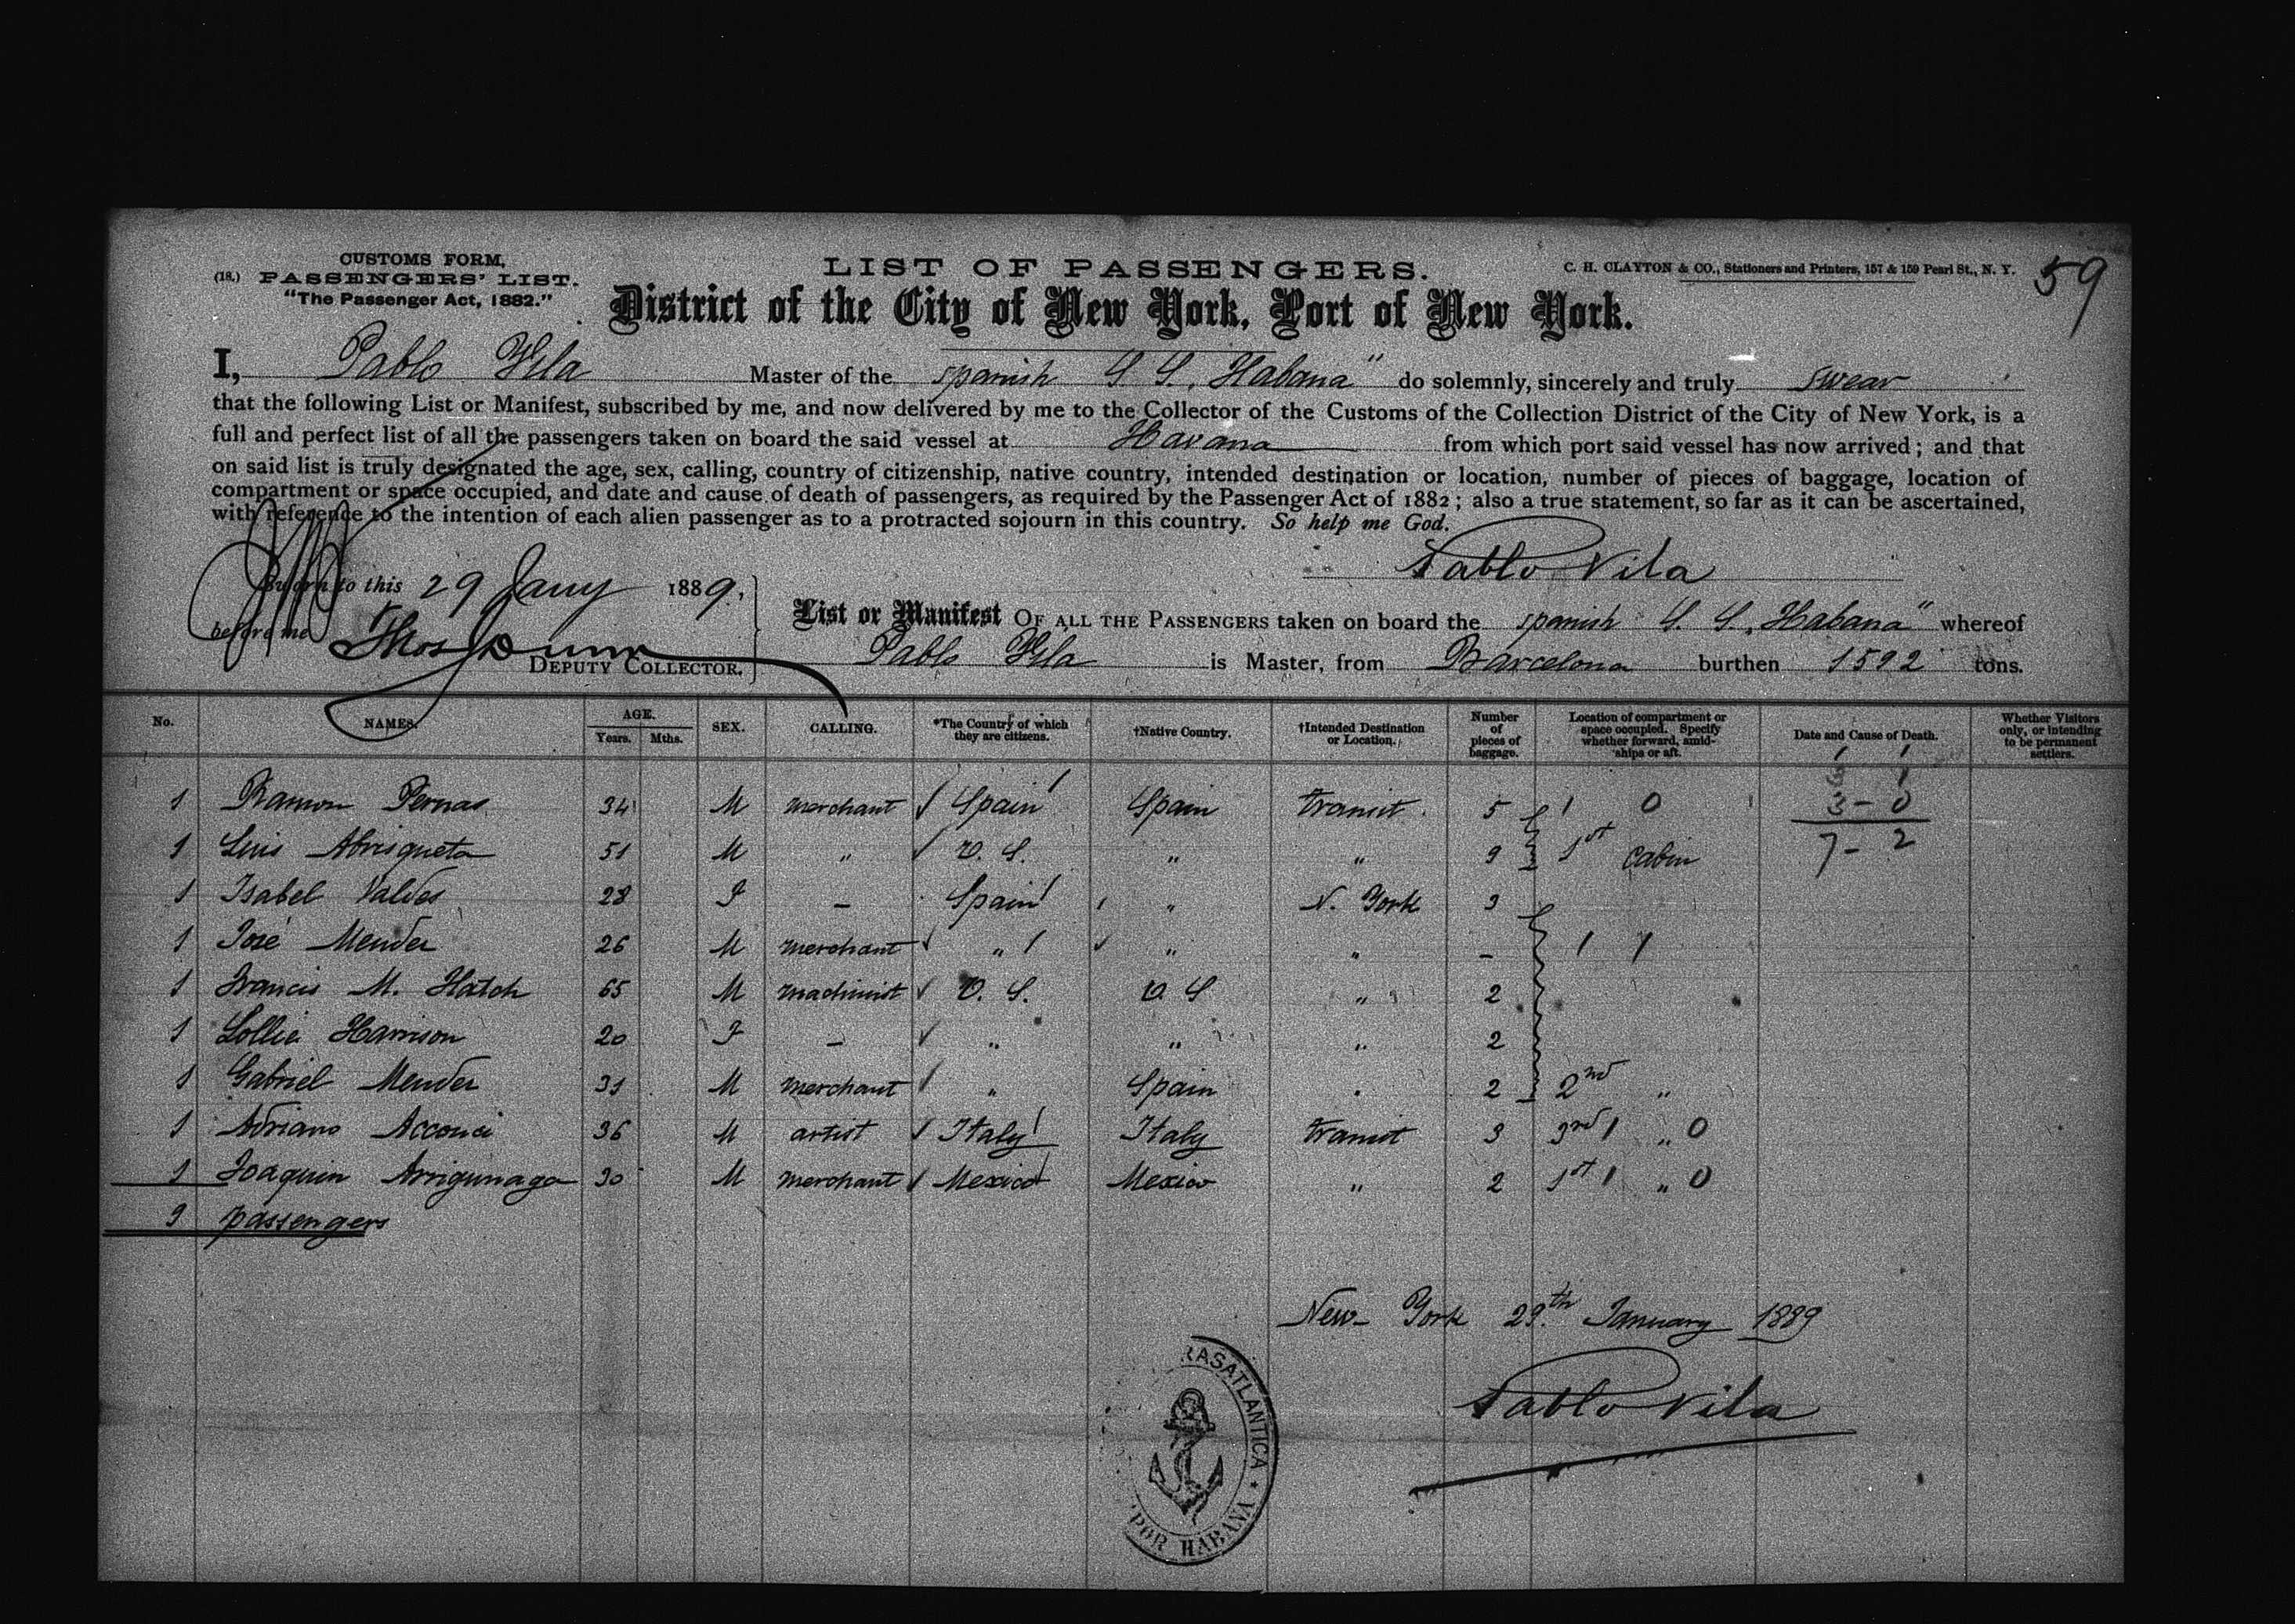 59
CUSTOMS FORM,
(18.) PASSENGERS' LIST.
"The Passenger Act, 1882."
LIST OF PASSENGERS.
C. H. CLAYTON & CO., Stationers and Printers, 157 & 159 Pearl St., N. Y.
District of the City of New York, Port of New York.
I, Pablo Vila Master of the spanish S. S. „Habana" do solemnly, sincerely and truly swear
that the following List or Manifest, subscribed by me, and now delivered by me to the Collector of the Customs of the Collection District of the City of New York, is a
full and perfect list of all the passengers taken on board the said vessel at Havana from which port said vessel has now arrived; and that
on said list is truly designated the age, sex, calling, country of citizenship, native country, intended destination or location, number of pieces of baggage, location of
compartment or space occupied, and date and cause of death of passengers, as required by the Passenger Act of 1882; also a true statement, so far as it can be ascertained,
with reference to the intention of each alien passenger as to a protracted sojourn in this country. So help me God.
Pablo Vila
Sworn to this 29 Jany 1889,
before me Thos Dunn
DEPUTY COLLECTOR.
List or Manifest OF ALL THE PASSENGERS taken on board the spanish S. S. „Habana" whereof
Pablo Vila is Master, from Barcelona burthen 1592 tons.
No. NAMES. AGE. Years. Mths. SEX. CALLING. *The Country of which they are citizens. †Native Country. †Intended Destination or Location. Number of pieces of baggage. Location of compartment or space occupied. Specify whether forward, amidships or aft. Date and Cause of Death. Whether Visitors only, or intending to be permanent settlers.
1 Ramon Pernas 34 M merchant Spain Spain transit 5 1 0 3 - 0
1 Luis Abrisqueta 51 M „ U. S. „ „ 9 1st cabin 7 - 2
1 Isabel Valdes 28 F – Spain „ N. York 3
1 José Mendez 26 M merchant „ „ „ – 1 1
1 Francis M. Hatch 65 M machinist U. S. U S „ 2
1 Lollie Harrison 20 F – „ „ „ 2
1 Gabriel Mendez 31 M merchant „ Spain „ 2 2nd „
1 Adriano Acconci 36 M artist Italy Italy transit 3 3rd 1 „ 0
1 Joaquin Arrigunaga 30 M merchant Mexico Mexico „ 2 1st 1 „ 0
9 passengers
New-York 29th January 1889
Pablo Vila
RASATLANTICA
POR HABANA